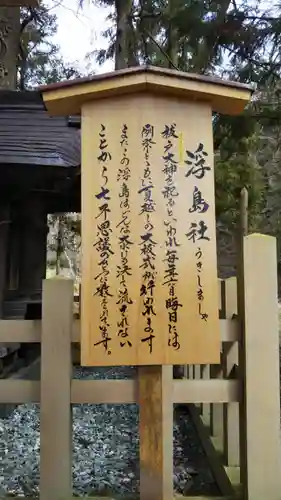 浮島社 うきしましゃ
祓戸大神を祀るといわれ毎年六月晦日には
例祭と共に夏越しの大祓式が行われます
またこの浮島はどんな大水にも決して流されない
ことから七不思議の一つに数えられて